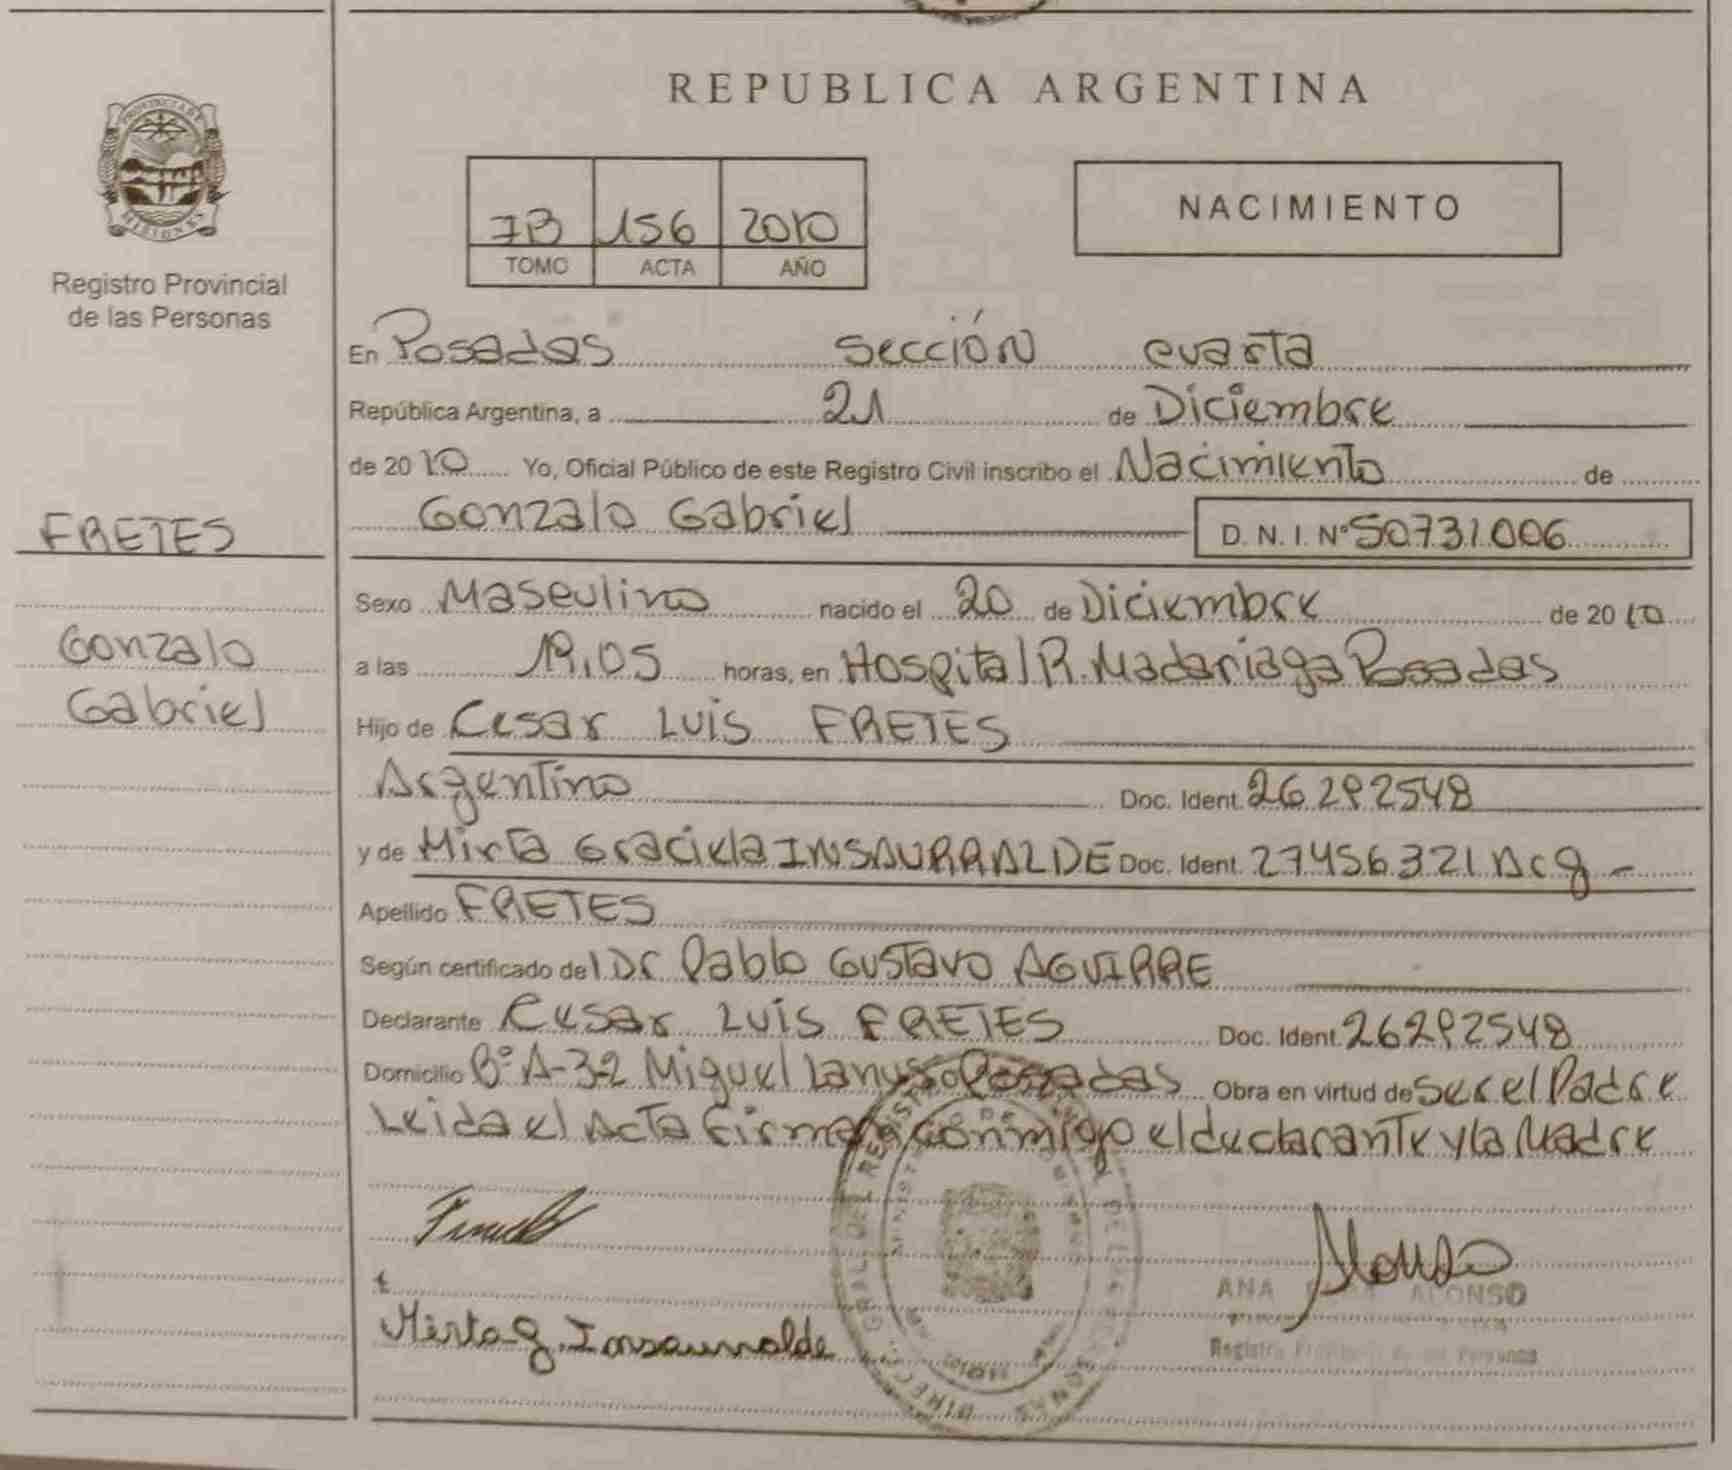 PROVINCIA DE
MISIONES
Registro Provincial
de las Personas
FRETES
Gonzalo
Gabriel
REPUBLICA ARGENTINA
7B 156 2010
TOMO ACTA AÑO
NACIMIENTO
En Posadas sección cuarta
República Argentina, a 21 de Diciembre
de 2010 Yo, Oficial Público de este Registro Civil inscribo el Nacimiento de
Gonzalo Gabriel D. N. I. Nº 50.731.006
Sexo Masculino nacido el 20 de Diciembre de 2010
a las 19,05 horas, en Hospital R. Madariaga Posadas
Hijo de Cesar Luis FRETES
Argentino Doc. Ident. 26.292548
y de Mirta Graciela INSAURRALDE Doc. Ident. 27456321 Arg -
Apellido FRETES
Según certificado del Dr Pablo Gustavo AGUIRRE
Declarante Cesar Luis FRETES Doc. Ident. 26292548
Domicilio Bº A-3-2 Miguel Lanusse Posadas Obra en virtud de Ser el Padre
Leida el Acta firman conmigo el declarante y la Madre
Mirta G. Insaurralde
Alonso
ANA ALONSO
Registro